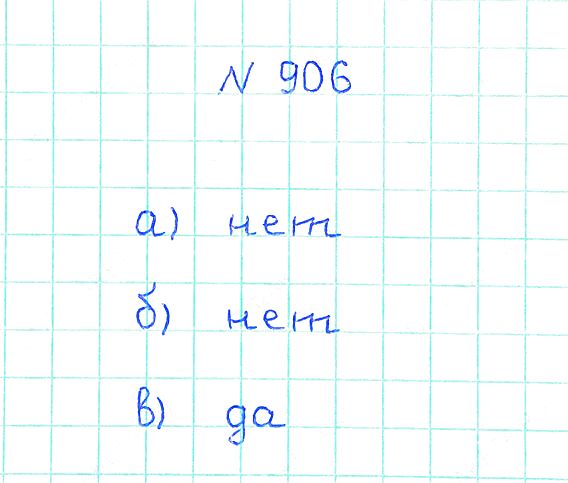 N 906
а) нет
б) нет
в) да